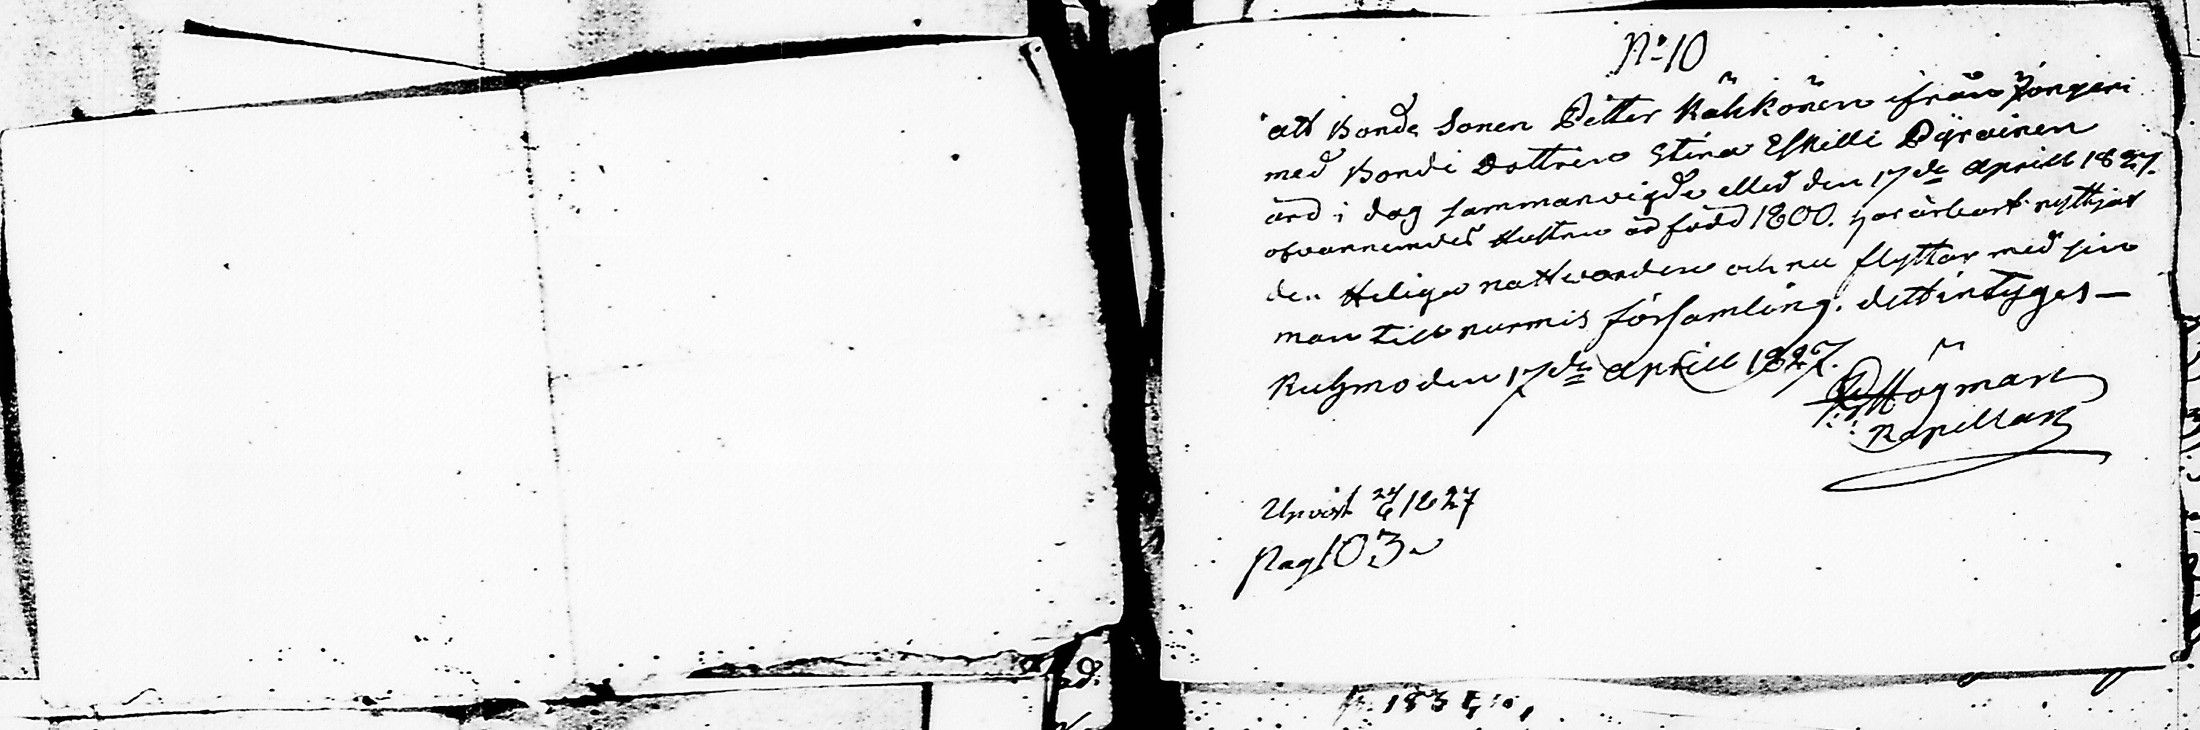 No 10
att Bonde Sonen Petter Kähkönen ifrån Jongeri
med Bonde Dottren Stina Eskilli Pyrainen
ärd i dag sammanvigde elled den 17de Aprill 1827.
ofvannemdes Hustru är född 1800. har ärbart nyttjat
den Heliga nattvarden och nu flyttar med sin
man till nurmis församling. dett intyges —
Kuhmo den 17de Aprill 1827.
Högman
Kapellan
Upvist 24/6 1827
Pag 103